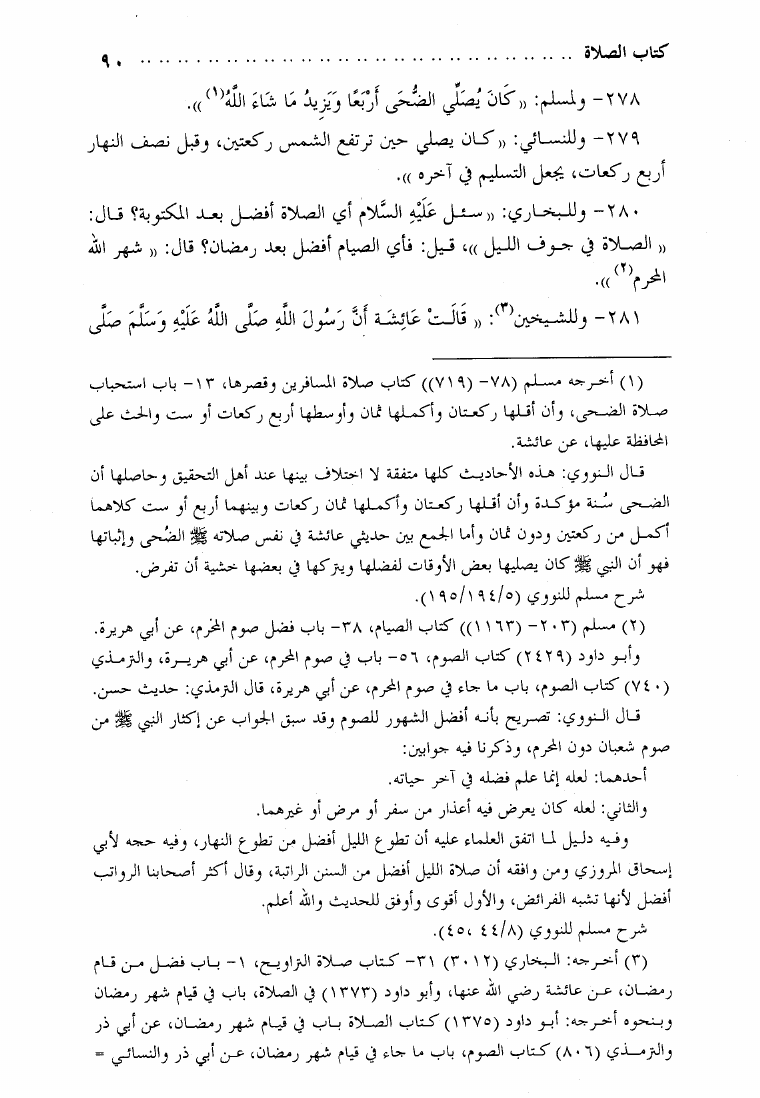 كتاب الصلاة .................................................. ٩٠
٢٧٨- ولمسلم: « كَانَ يُصَلِّي الضُّحَى أَرْبَعًا وَيَزِيدُ مَا شَاءَ اللَّهُ(١) ».
٢٧٩- وللنسائي: « كان يصلي حين ترتفع الشمس ركعتين، وقبل نصف النهار
أربع ركعات، يجعل التسليم في آخره ».
٢٨٠- وللبخاري: « سئل عَلَيْهِ السَّلام أي الصلاة أفضل بعد المكتوبة؟ قال:
« الصلاة في جوف الليل »، قيل: فأي الصيام أفضل بعد رمضان؟ قال: « شهر الله
المحرم(٢) ».
٢٨١- وللشيخين(٣): « قَالَتْ عَائِشَة أَنَّ رَسُولَ اللَّهِ صَلَّى اللَّهُ عَلَيْهِ وَسَلَّمَ صَلَّى
(١) أخرجه مسلم (٧٨- (٧١٩)) كتاب صلاة المسافرين وقصرها، ١٣- باب استحباب
صلاة الضحى، وأن أقلها ركعتان وأكملها ثمان وأوسطها أربع ركعات أو ست والحث على
المحافظة عليها، عن عائشة.
قال النووي: هذه الأحاديث كلها متفقة لا اختلاف بينها عند أهل التحقيق وحاصلها أن
الضحى سُنة مؤكدة وأن أقلها ركعتان وأكملها ثمان ركعات وبينهما أربع أو ست كلاهما
أكمل من ركعتين ودون ثمان وأما الجمع بين حديثي عائشة في نفس صلاته ﷺ الضُحى وإثباتها
فهو أن النبي ﷺ كان يصليها بعض الأوقات لفضلها ويتركها في بعضها خشية أن تفرض.
شرح مسلم للنووي (١٩٥/١٩٤/٥).
(٢) مسلم (٢٠٣- (١١٦٣)) كتاب الصيام، ٣٨- باب فضل صوم المحرم، عن أبي هريرة.
وأبو داود (٢٤٢٩) كتاب الصوم، ٥٦- باب في صوم المحرم، عن أبي هريرة، والترمذي
(٧٤٠) كتاب الصوم، باب ما جاء في صوم المحرم، عن أبي هريرة، قال الترمذي: حديث حسن.
قال النووي: تصريح بأنه أفضل الشهور للصوم وقد سبق الجواب عن إكثار النبي ﷺ من
صوم شعبان دون المحرم، وذكرنا فيه جوابين:
أحدهما: لعله إنما علم فضله في آخر حياته.
والثاني: لعله كان يعرض فيه أعذار من سفر أو مرض أو غيرهما.
وفيه دليل لما اتفق العلماء عليه أن تطوع الليل أفضل من تطوع النهار، وفيه حجه لأبي
إسحاق المروزي ومن وافقه أن صلاة الليل أفضل من السنن الراتبة، وقال أكثر أصحابنا الرواتب
أفضل لأنها تشبه الفرائض، والأول أقوى وأوفق للحديث والله أعلم.
شرح مسلم للنووي (٤٤/٨، ٤٥).
(٣) أخرجه: البخاري (٣٠١٢) ٣١- كتاب صلاة التراويح، ١- باب فضل من قام
رمضان، عن عائشة رضي الله عنها، وأبو داود (١٣٧٣) في الصلاة، باب في قيام شهر رمضان
وبنحوه أخرجه: أبو داود (١٣٧٥) كتاب الصلاة باب في قيام شهر رمضان، عن أبي ذر
والترمذي (٨٠٦) كتاب الصوم، باب ما جاء في قيام شهر رمضان، عن أبي ذر والنسائي =